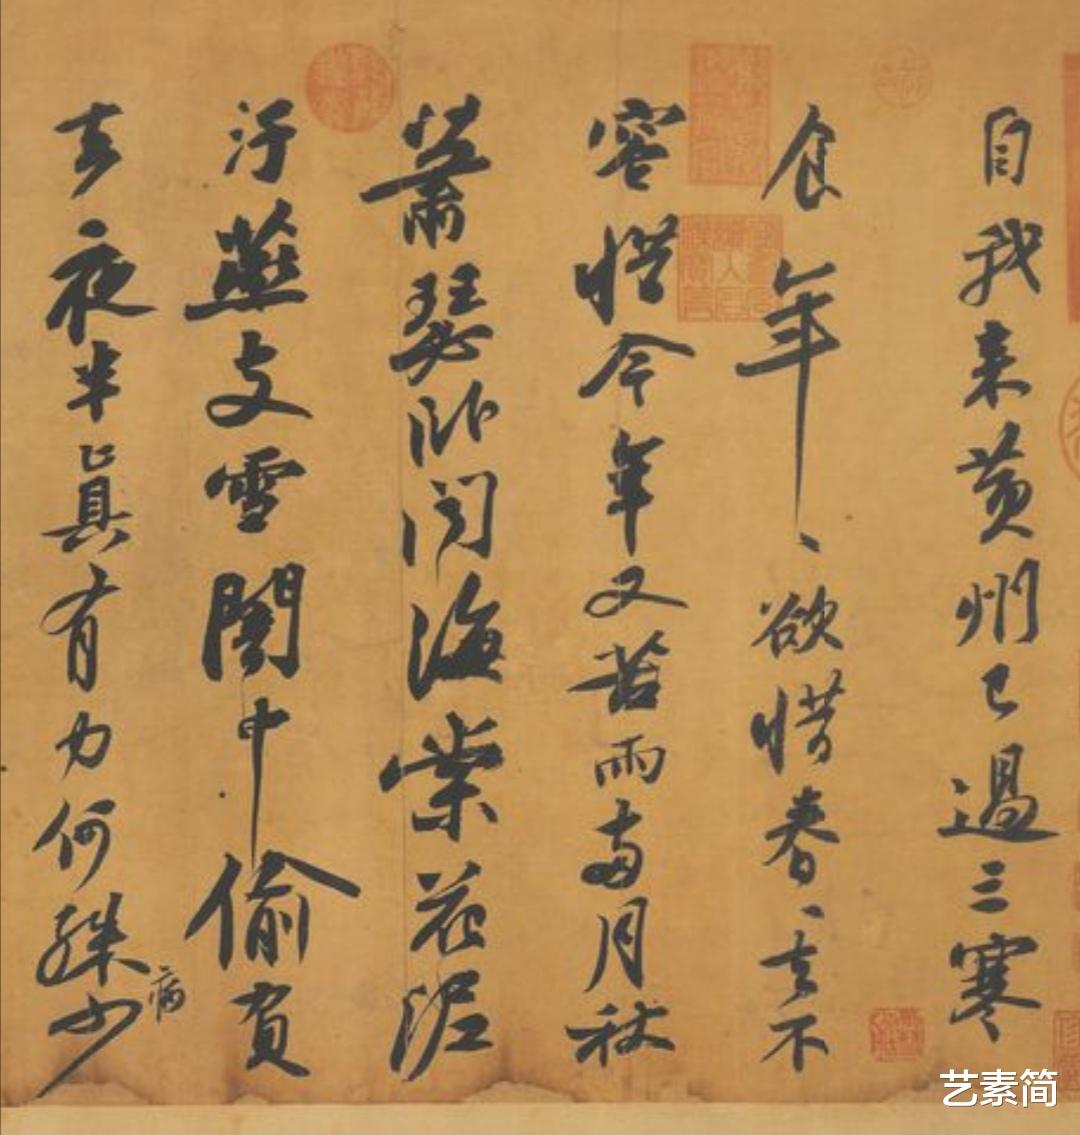 自我来黄州已過三寒
食年〻欲惜春〻去不
容惜今年又苦雨兩月秋
蕭瑟卧聞海棠花泥
汙燕支雪闇中偷負
去夜半真有力何殊少
病
艺素简